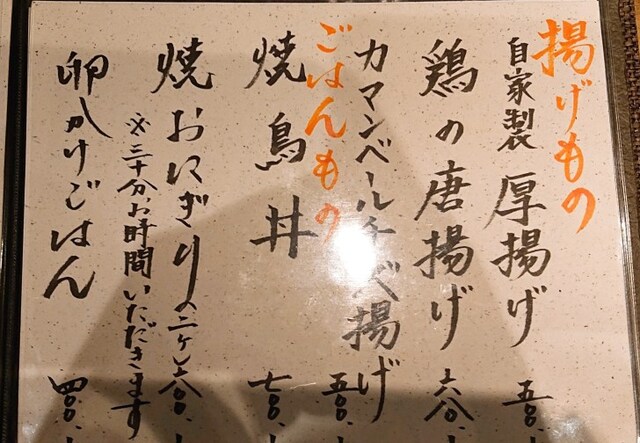 揚げもの
自家製 厚揚げ 五〇〇
鶏の唐揚げ
カマンベールチーズ揚げ 五〇〇
ごはんもの
焼鳥丼 七〇〇
焼おにぎり(二ケ) 六〇〇
※三十分お時間いただきます
卵かけごはん 四〇〇